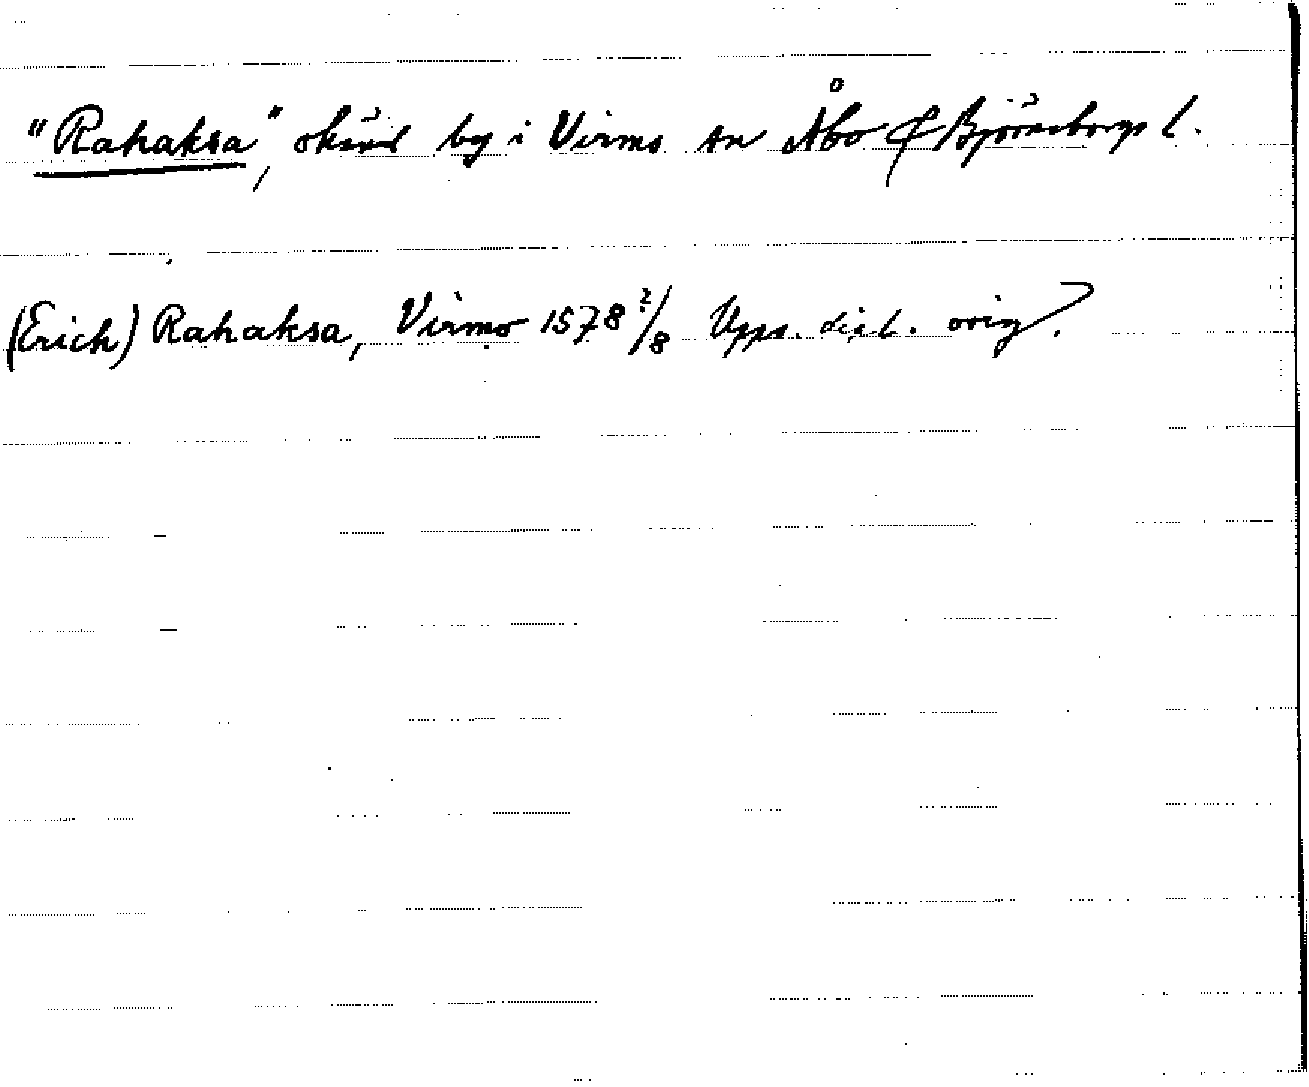 "Rahaksa", okänd by i Virmo sn Åbo & Björneborgs l.
(Erich) Rahaksa, Virmo 1578 2/8 Upps. dipl. orig?